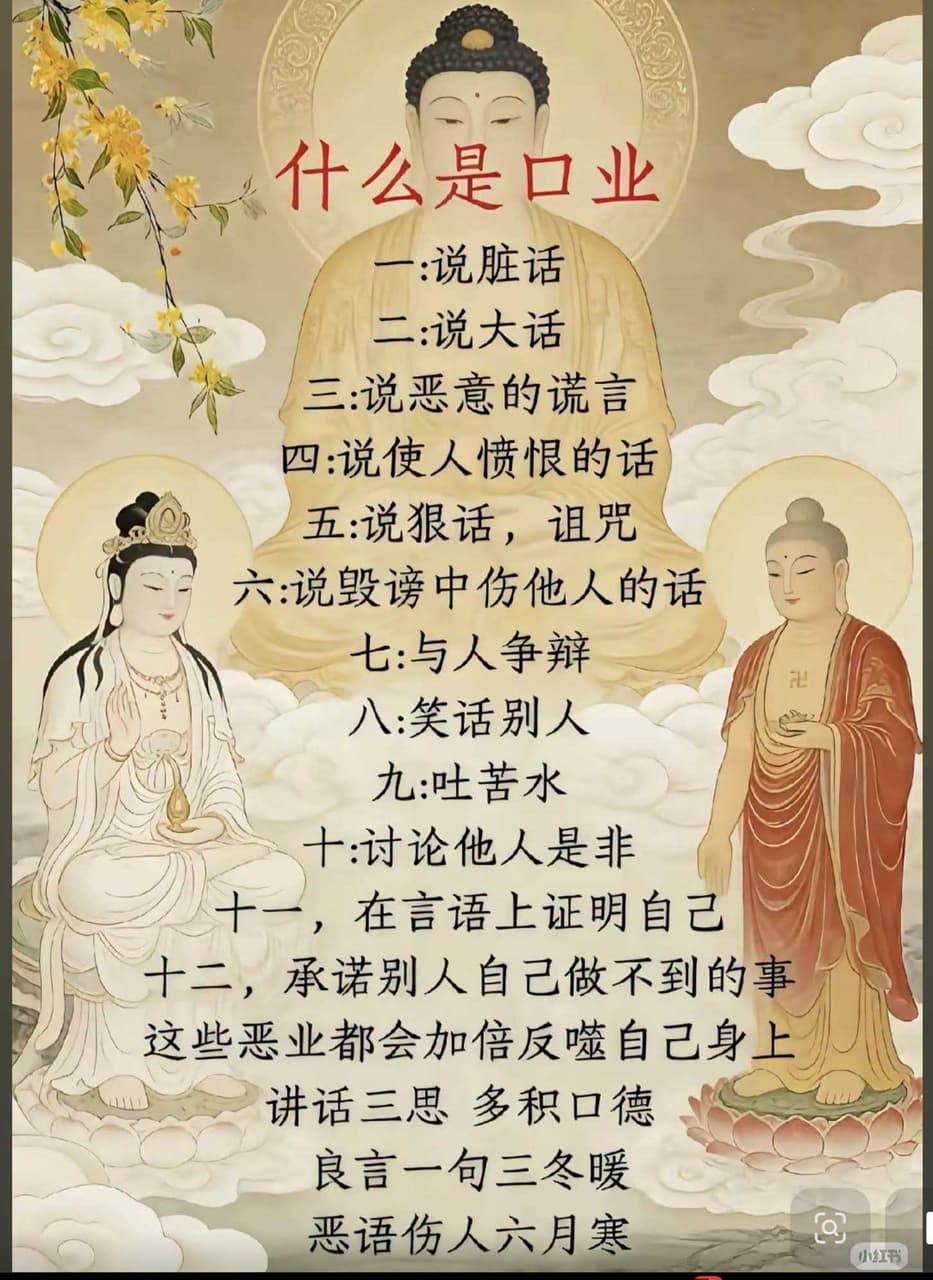 什么是口业
一:说脏话
二:说大话
三:说恶意的谎言
四:说使人愤恨的话
五:说狠话，诅咒
六:说毁谤中伤他人的话
七:与人争辩
八:笑话别人
九:吐苦水
十:讨论他人是非
十一，在言语上证明自己
十二，承诺别人自己做不到的事
这些恶业都会加倍反噬自己身上
讲话三思 多积口德
良言一句三冬暖
恶语伤人六月寒
小红书